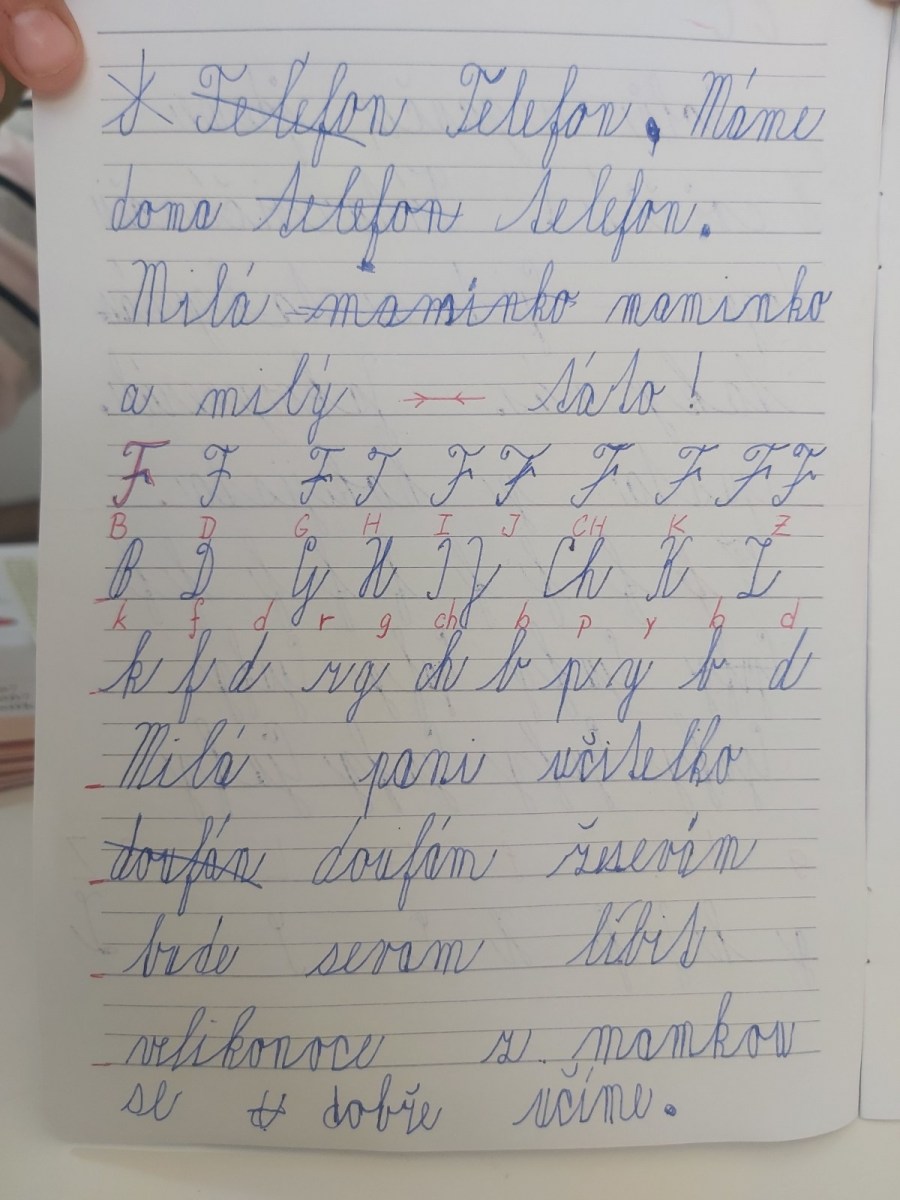 Telefon Telefon. Máme
doma telefon telefon.
Milá maminko maminko
a milý táto!
F F F F F F F F F F
B D G H I J CH K Z
B D G H I J Ch K Z
k f d r g ch b p y b d
k f d r g ch b p y b d
Milá pani učitelko
doufán doufám žesevám
bude sevam líbit
velikonoce z mamkou
se dobře učíme.